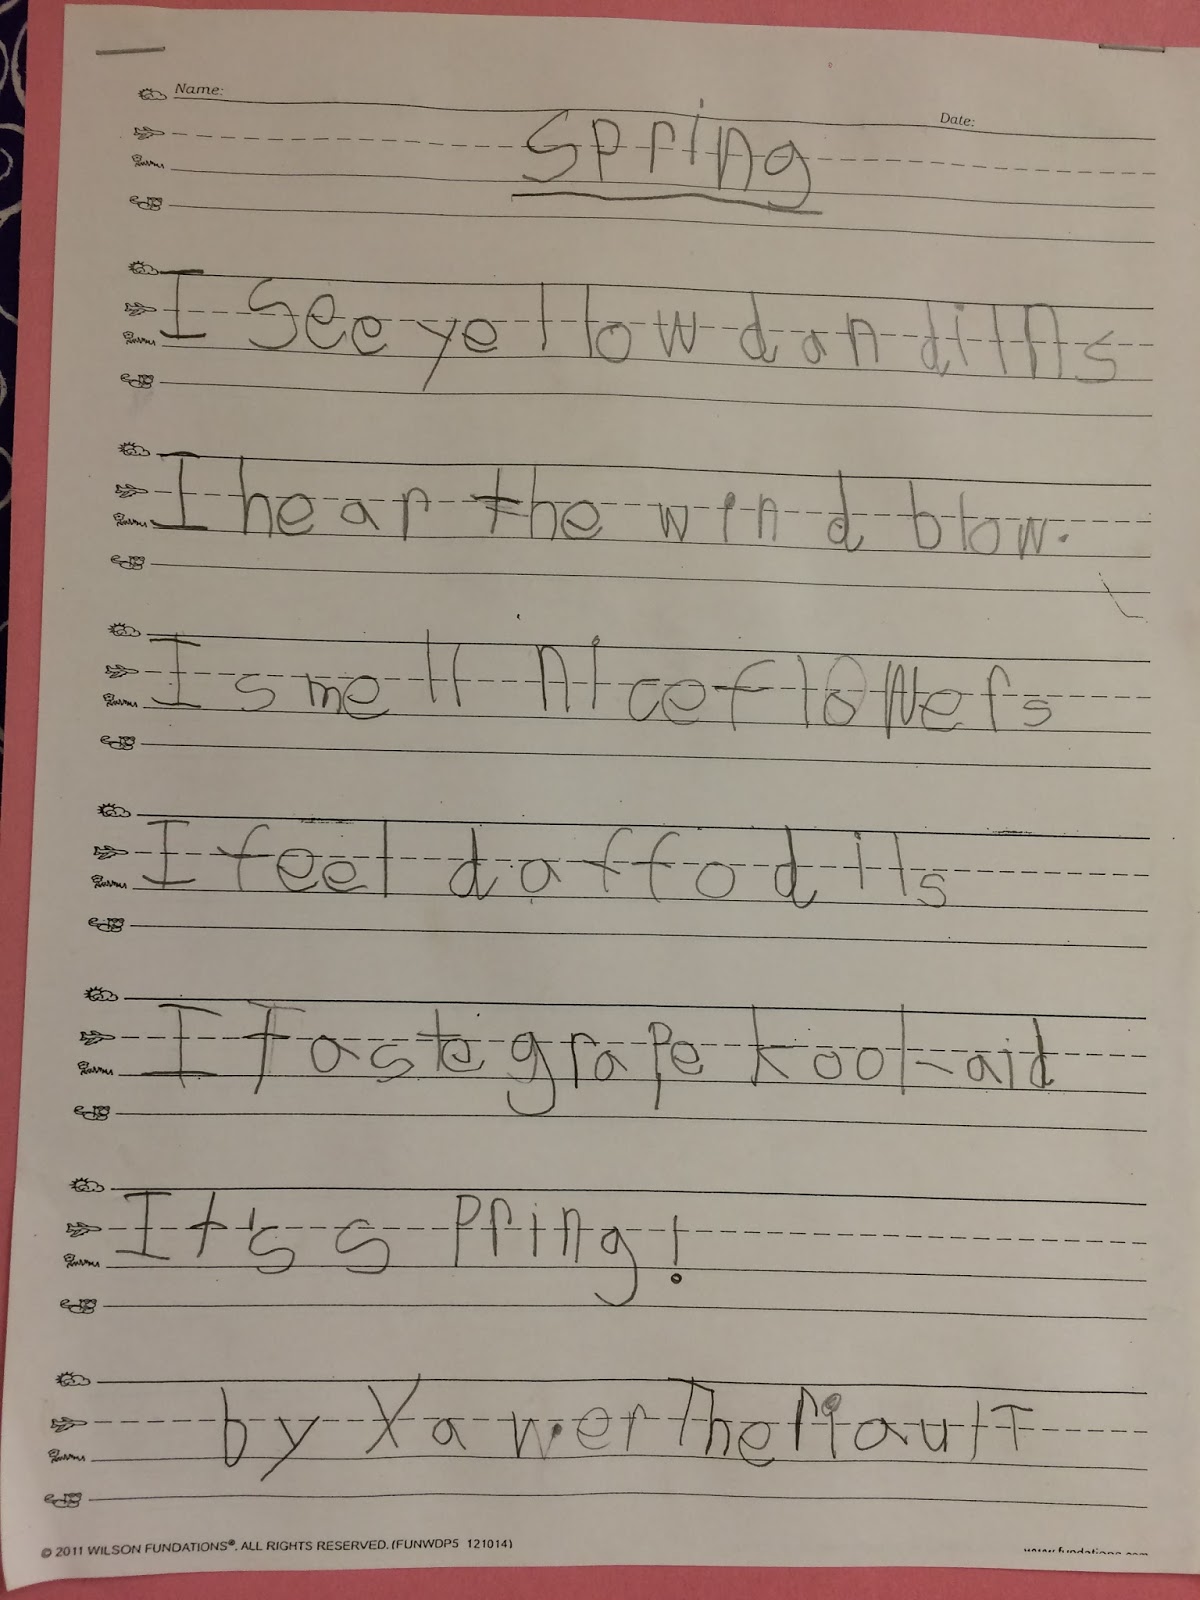 Name:
Date:
Spring
I See yellow danditns
I hear the wind blow.
I smell nice flowers
I feel daffodils
I taste grape kool-aid
It's spring!
by Xawer Theriault
© 2011 WILSON FUNDATIONS®. ALL RIGHTS RESERVED. (FUNWDP5 121014)